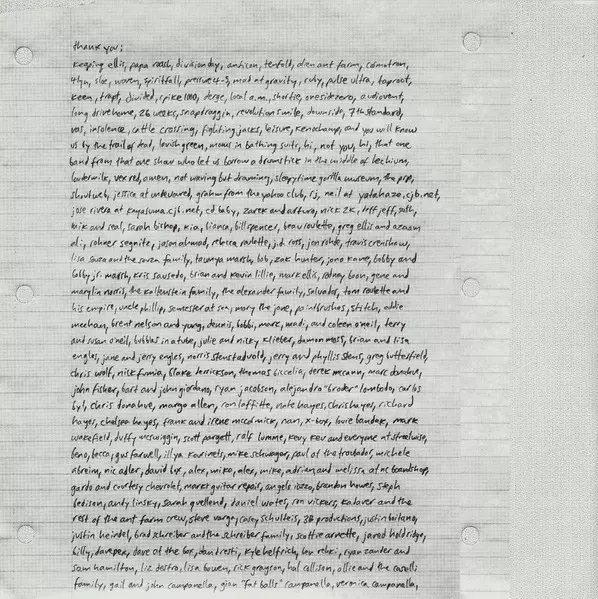 thank you:
keeping ellis, papa roach, division day, anticon, tenfold, alien ant farm,
4lyn, sloe, woven, spiritfall, pressure 4-5, mad at gravity, ruby, pulse ultra, taproot,
keen, trapt, divided, spike 1000, derge, local a.m., shortie, onesidezero, audiovent,
long drive home, 26 weeks, snapdraggin, revolution smile, downside, 7th standard,
vas, insolence, cattle crossing, fighting jacks, leisure, and you will know
us by the trail of dead, lovish green, moms in bathing suits, hi, not you, hi, that one
band from that one show who let us borrow a drumstick in the middle of
louderwilk, vex red, amen, not waving but drowning, sleepytime gorilla museum, the pep,
shoutweb, jessica at undevoured, graham from the yahoo club, rj, neil at yatahaze.cjb.net,
jose rivera at kuyasuma.cjb.net, cd baby, zarek and arturo, nick zk, jeff jeff,
mik and seal, sarah bishop, kia, bianca, bill spencer, beau roulette, greg ellis and azaam
ali, rohner segnitz, jason ahmad, rebecca roulette, j.d. ross, jon rohde, travis crenshaw,
lisa souza and the souza family, tawnya marsh, bob, zak hunter, jono kave, bobby and
bobby jr. marsh, kris sausedo, brian and kevin lillie, mark ellis, rodney boon, gene and
marylin norris, the kollenstein family, the alexander family, salvador, tom roulette and
his empire, uncle phillip, semester at sea, mary the jane, paintbrushes, stitch, eddie
meehan, brent nelson and young, dennis, bobbi, marc, madi, and coleen o'neil, terry
and susan o'neil, bubbles in a tube, julie and nicky klieber, damon moss, brian and lisa
engles, jane and jerry engles, norris stenstadvold, jerry and phyllis stens, greg butterfield,
chris wolf, nick funnia, blake derrickson, thomas biscelia, derek mccann, marc donahue,
john fisher, bart and john giordano, ryan jacobson, alejandra "broder" lombado, carlos
by!, chris donahue, margo allen, ron laffitte, nate hayes, chris hayes, richard
hayes, chelsea hayes, frank and irene mccormick, nan, x-box, louie bandak, mark
wakefield, duffy mcswiggin, scott pargett, ralf lumme, kevy kev and everyone at streetwise,
beno, becca, gus farwell, illya korinets, mike schwager, paul at the troubador, michele
abreim, nic adler, david bix, alex, mike, alex, mike, adrian and melissa at nc boardshop,
gardo and courtesy chevrolet, markt guitar repair, angelo ibzzo, brandon howes, steph
fedison, andy linsky, sarah quellend, daniel wates, ron vickers, kalover and the
rest of the ant farm crew, steve varga, casey schulteis, 3B productions, justin boitano,
justin heindel, brad schreiber and the schreiber family, scottie arnette, jared holdridge,
billy, davepex, dave at the box, dan dresti, kyle helfrich, lou rehki, ryan zander and
sam hamilton, liz destro, lisa bowen, rick grayson, hal collison, allie and the caselli
family, gail and john campanella, gian "fat balls" campanella, veronica campanella,